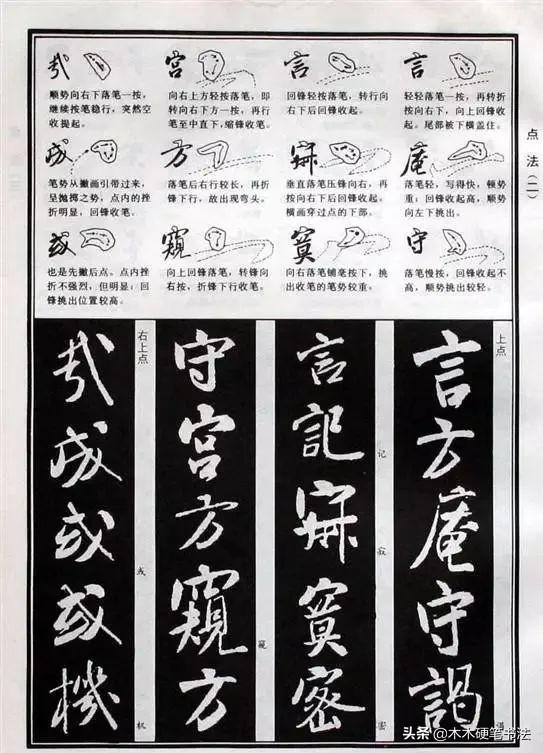 点法(二)
言
轻轻落笔一按,再转折
按向右下,向上回锋收
起。尾部被下横盖住。
庵
落笔轻,写得快,顿势
重;回锋收起高,顺势
向左下挑出。
守
落笔慢按,回锋收起不
高,顺势挑出较轻。
言
回锋轻按落笔,转行向
右下后回锋收起。
寂
垂直落笔压锋向右,再
按向右下后回锋收起。
横画穿过点的下部。
寞
向右落笔铺毫按下,挑
出收笔的笔势较重。
宫
向右上方轻按落笔,即
转向右下方一按,再行
笔至中直下,缩锋收笔。
方
落笔后右行较长,再折
锋下行,故出现弯头。
窥
向上回锋落笔,转锋向
右按,折锋下行收笔。
顺势向右下落笔一按,
继续按笔稳行,突然空
收提起。
成
笔势从撇画引带过来,
呈抛掷之势,点内的挫
折明显,回锋收笔。
或
也是先撇后点。点内挫
折不强烈,但明显;回
锋挑出位置较高。
上点
言方庵守謁
言記寂寞密
记
寂
密
守宫方窺方
窥
右上点
成或或機
或
机
头条 @木木硬笔书法